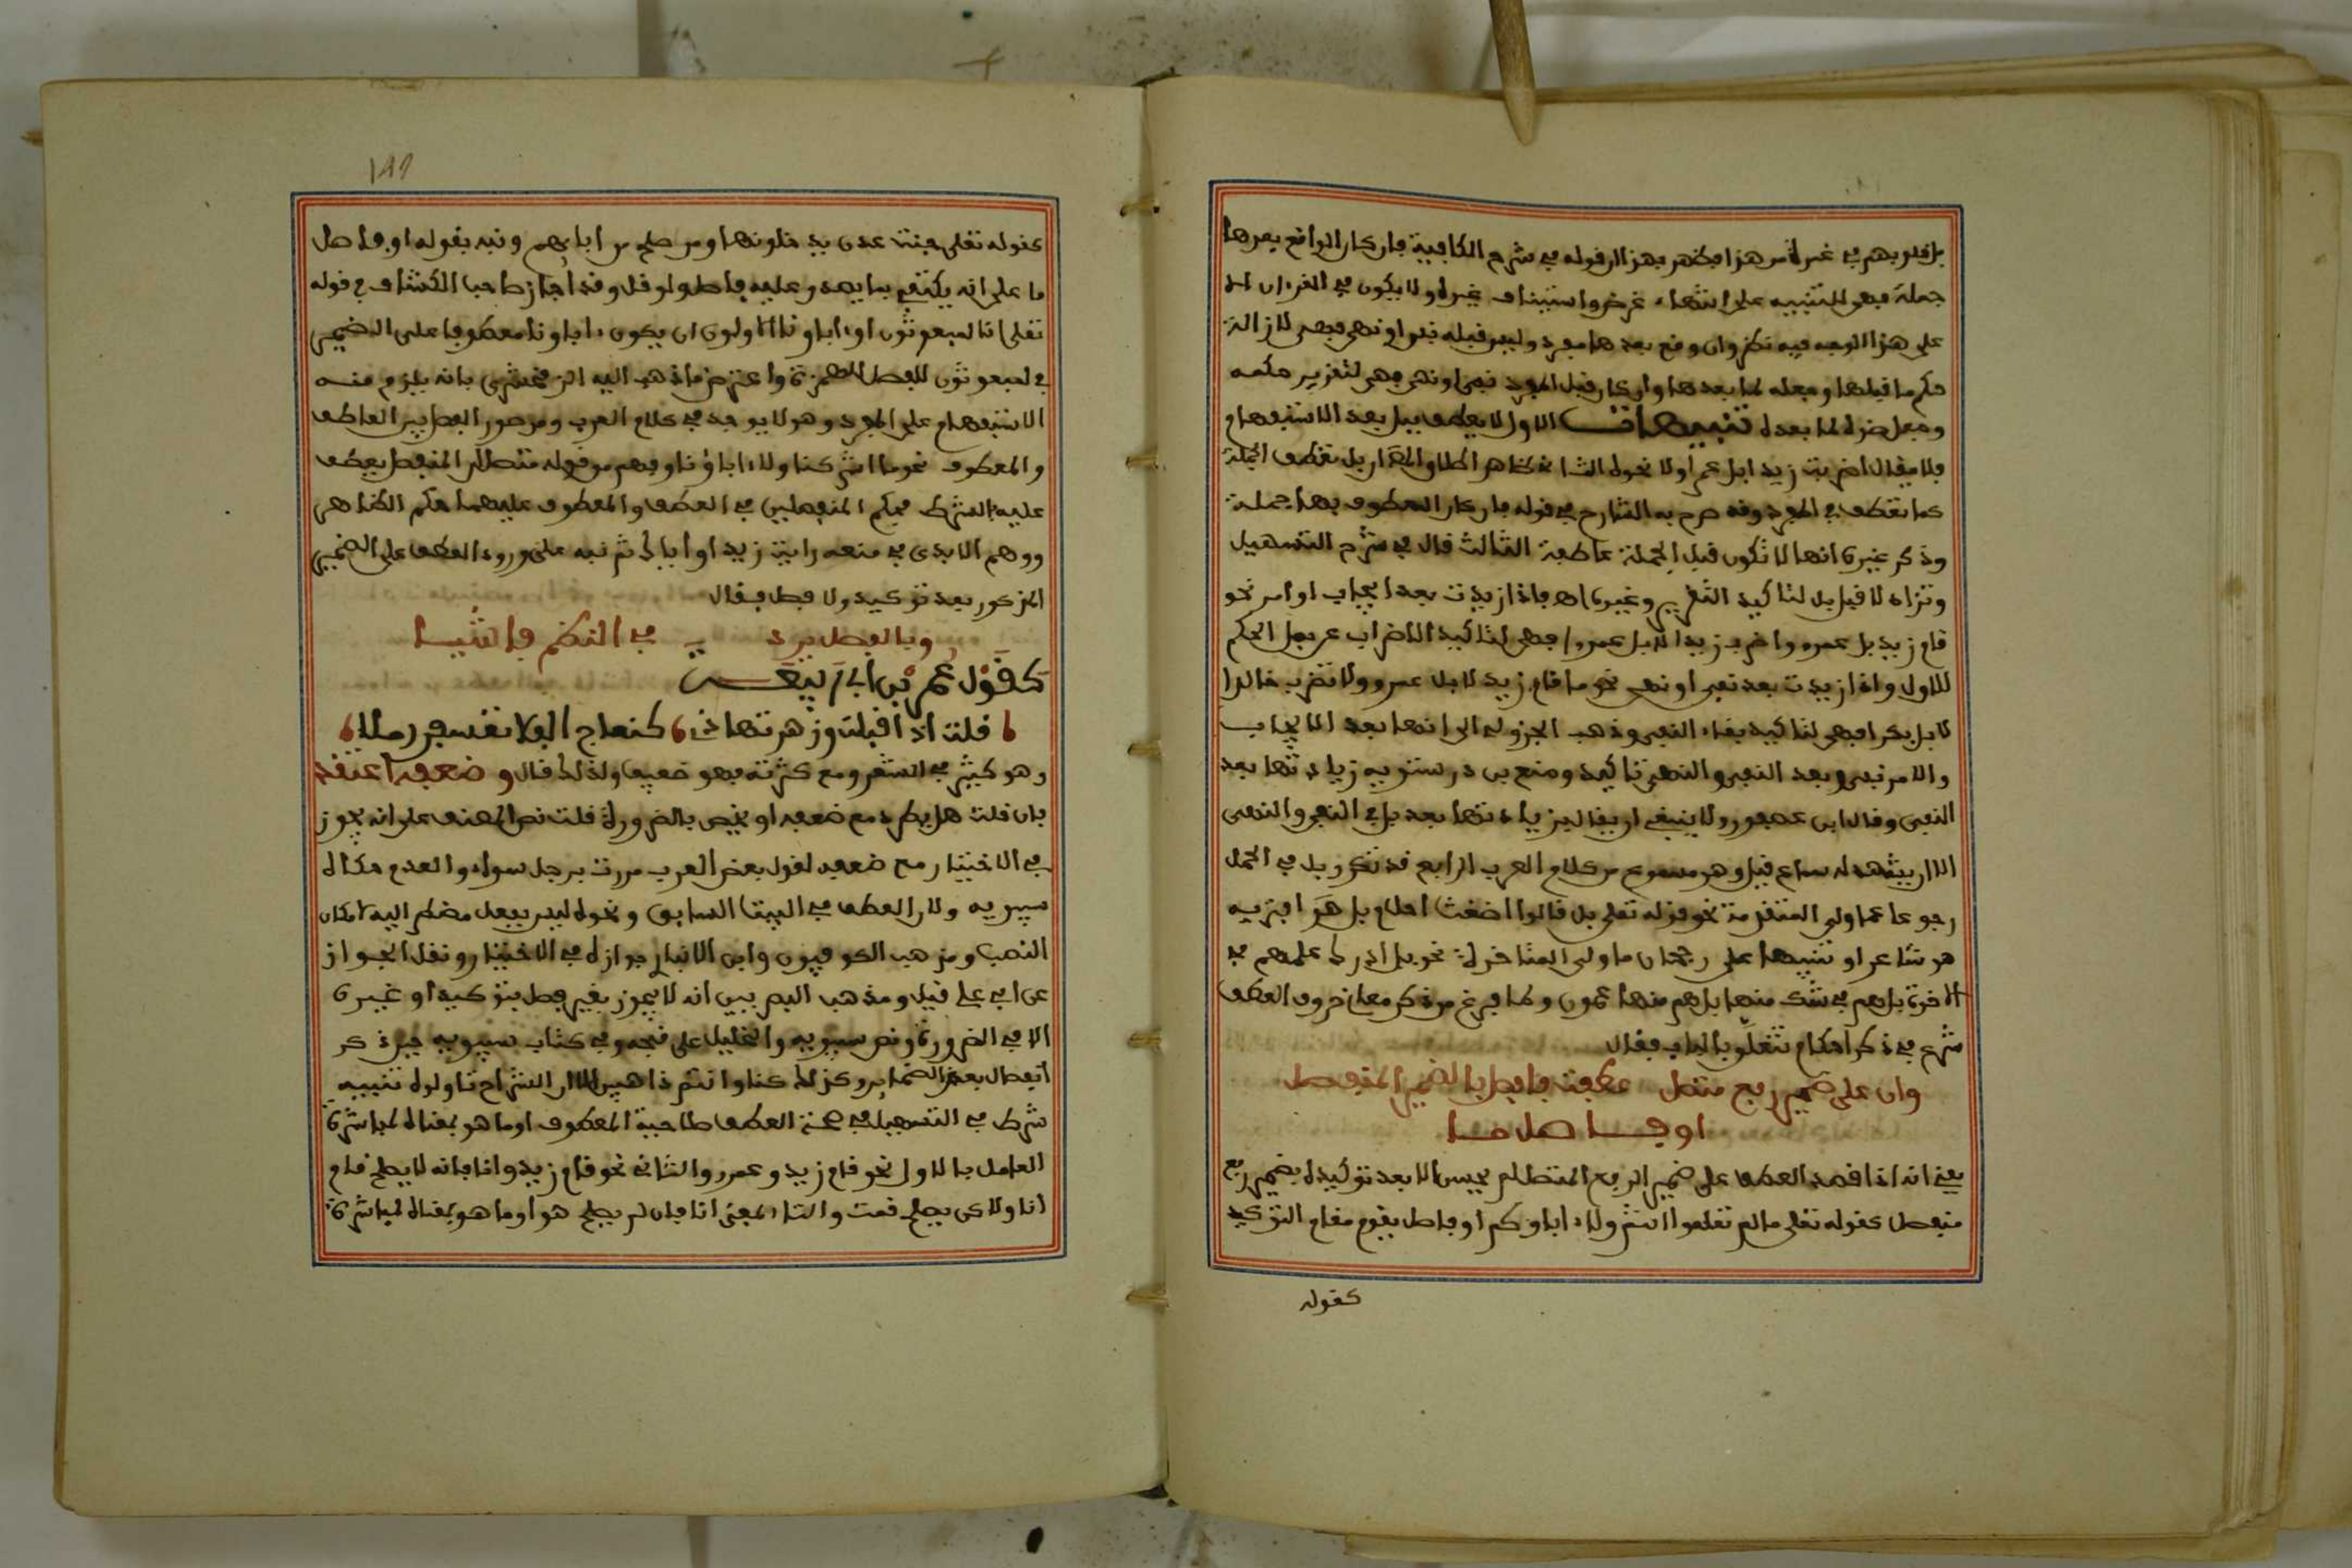 بل قلوبهم في غمرة من هذا فظهر بهذا ان قوله في شرح الكافية فان كان الواقع بعدها
جملة فهي للتنبيه على انتهاء غرض واستيناف غيره ولا يكون في القرءان الا
على هذا الوجه فيه نظر وان وقع بعدها مفرد وليس قبله نفي او نهي فهي لازالة
حكم ما قبلها وجعله لما بعدها وان كان قبل المفرد نفي او نهي فهي لتقرير حكمه
وجعل ضده لما بعده تنبيهات الاول لا يعطف ببل بعد الاستفهام
فلا يقال اضربت زيدا بل عمرا ولا نحوه الثاني ظاهر اطلاق المرادي ان بل تعطف الجملة
كما تعطف في المفرد وقد صرح به الشارح في قوله فان كان المعطوف بها جملة
وذكر غيره انها لا تكون قبل الجملة عاطفة الثالث قال في شرح التسهيل
وتزاد لا قبل بل لتاكيد التقرير وغيره اهـ فاذا زيدت بعد ايجاب او امر نحو
قام زيد لا بل عمرو واضرب زيدا لا بل عمروا فهي لتاكيد الاضراب عن جعل الحكم
للاول واذا زيدت بعد نفي او نهي نحو ما قام زيد لا بل عمرو ولا تضرب خالدا
لا بل بكرا فهي لتاكيد بقاء النفي وذهب الجزولي الى انها بعد الايجاب
والامر نفي وبعد النفي والنهي تاكيد ومنع بن درستويه زيادتها بعد
النفي وقال ابن عصفور ولا ينبغي ان يقال بزيادتها بعد بل في النفي والنهي
الا ان يشهد له سماع قيل وهو مسموع من كلام العرب الرابع قد تكرر بل في الجمل
رجوعا عما ولي المتقدمة نحو قوله تعلى بل قالوا اضغث احلام بل افتريه بل
هو شاعر او تنبيها على رجحان ما ولي المتاخرة نحو بل ادرك علمهم في
الاخرة بل هم في شك منها بل هم منها عمون ولما فرغ من ذكر معاني حروف العطف
شرع في ذكر احكام تتعلق بالباب فقال
وان على ضمير رفع متصل عطفت فافصل بالضمير المنفصل
او فاصل ما
يعني انه اذا قصد العطف على ضمير الرفع المتصل لم يحسن الا بعد توكيده بضمير رفع
منفصل كقوله تعلى ما لم تعلموا انتم ولا ءاباؤكم او فاصل يقوم مقام التوكيد
كقوله
١٨٩
كقوله تعلى جنت عدن يدخلونها ومن صلح من ابايهم ونبه بقوله او فاصل
ما على انه يكتفي بما يصدق عليه فاصل ولو قل وقد اجاز صاحب الكشاف في قوله
تعلى انا لمبعوثون او ءاباونا الاولون ان يكون ءاباونا معطوفا على الضمير
في لمبعوثون للفصل بالهمزة واعترض ما ذهب اليه الزمخشري بانه يلزم منه
الاستفهام على المفرد وهو لا يوجد في كلام العرب ومن صور الفصل بين العاطف
والمعطوف نحو ما اشركنا ولا ءاباؤنا وفهم من قوله متصل ان المنفصل يعطف
عليه بلا شرط فحكم المنفصلين في العطف والمعطوف عليهما حكم الظاهر
ووهم الابدي في منعه رايت زيدا واياك ثم نبه على ورود العطف على الضمير
المذكور بعد توكيد ولا فصل فقال
وبلا فصل يرد في النظم فاشيا
كقول عمر بن ابي ربيعة
قلت اذ اقبلت وزهر تهادى كنعاج الفلا تعسفن رملا
وهو كثير في الشعر ومع كثرته فهو ضعيف ولذلك قال وضعفه اعتقد
فان قلت هل يطرد مع ضعفه او يخص بالضرورة قلت نص المصنف على انه يجوز
في الاختيار مع ضعف لقول بعض العرب مررت برجل سواء والعدم حكاه
سيبويه ولان العطف في البيت السابق ونحوه ليس بفعل مضطر اليه لامكان
النصب ومذهب الكوفيون وابن الانباري جوازه في الاختيار ونقل الجواز
عن ابي علي قيل ومذهب البصريين انه لا يجوز بغير فصل بتوكيد او غيره
الا في الضرورة ونص سيبويه والخليل على قبحه وفي كتاب سيبويه حين ذكر
انفصال بعض الضماير وكذلك كنا وانتم ذاهبين الا ان الشراح تاولوه تنبيه
شرط في التسهيل في صحة العطف صلاحية المعطوف او ما هو بمعناه لمباشرة
العامل فالاول نحو قام زيد وعمرو والثاني نحو قام زيد وانا فانه لا يصلح قام
انا ولاكن يصلح قمت والتاء بمعنى انا فان لم يصلح هو او ما هو بمعناه لمباشرة